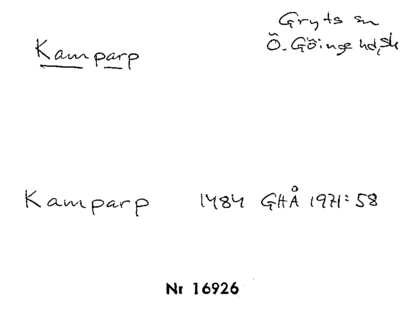 Gryts sn
Kamparp
Ö. Göinge hd, Sk
Kamparp 1484 GHÅ 1971:58
Nr 16926